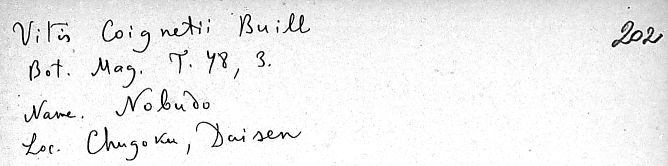 Vitis Coignetii Buill 202
Bot. Mag. T. 48, 3.
Name. Nobudo
Loc. Chugoku, Daisen